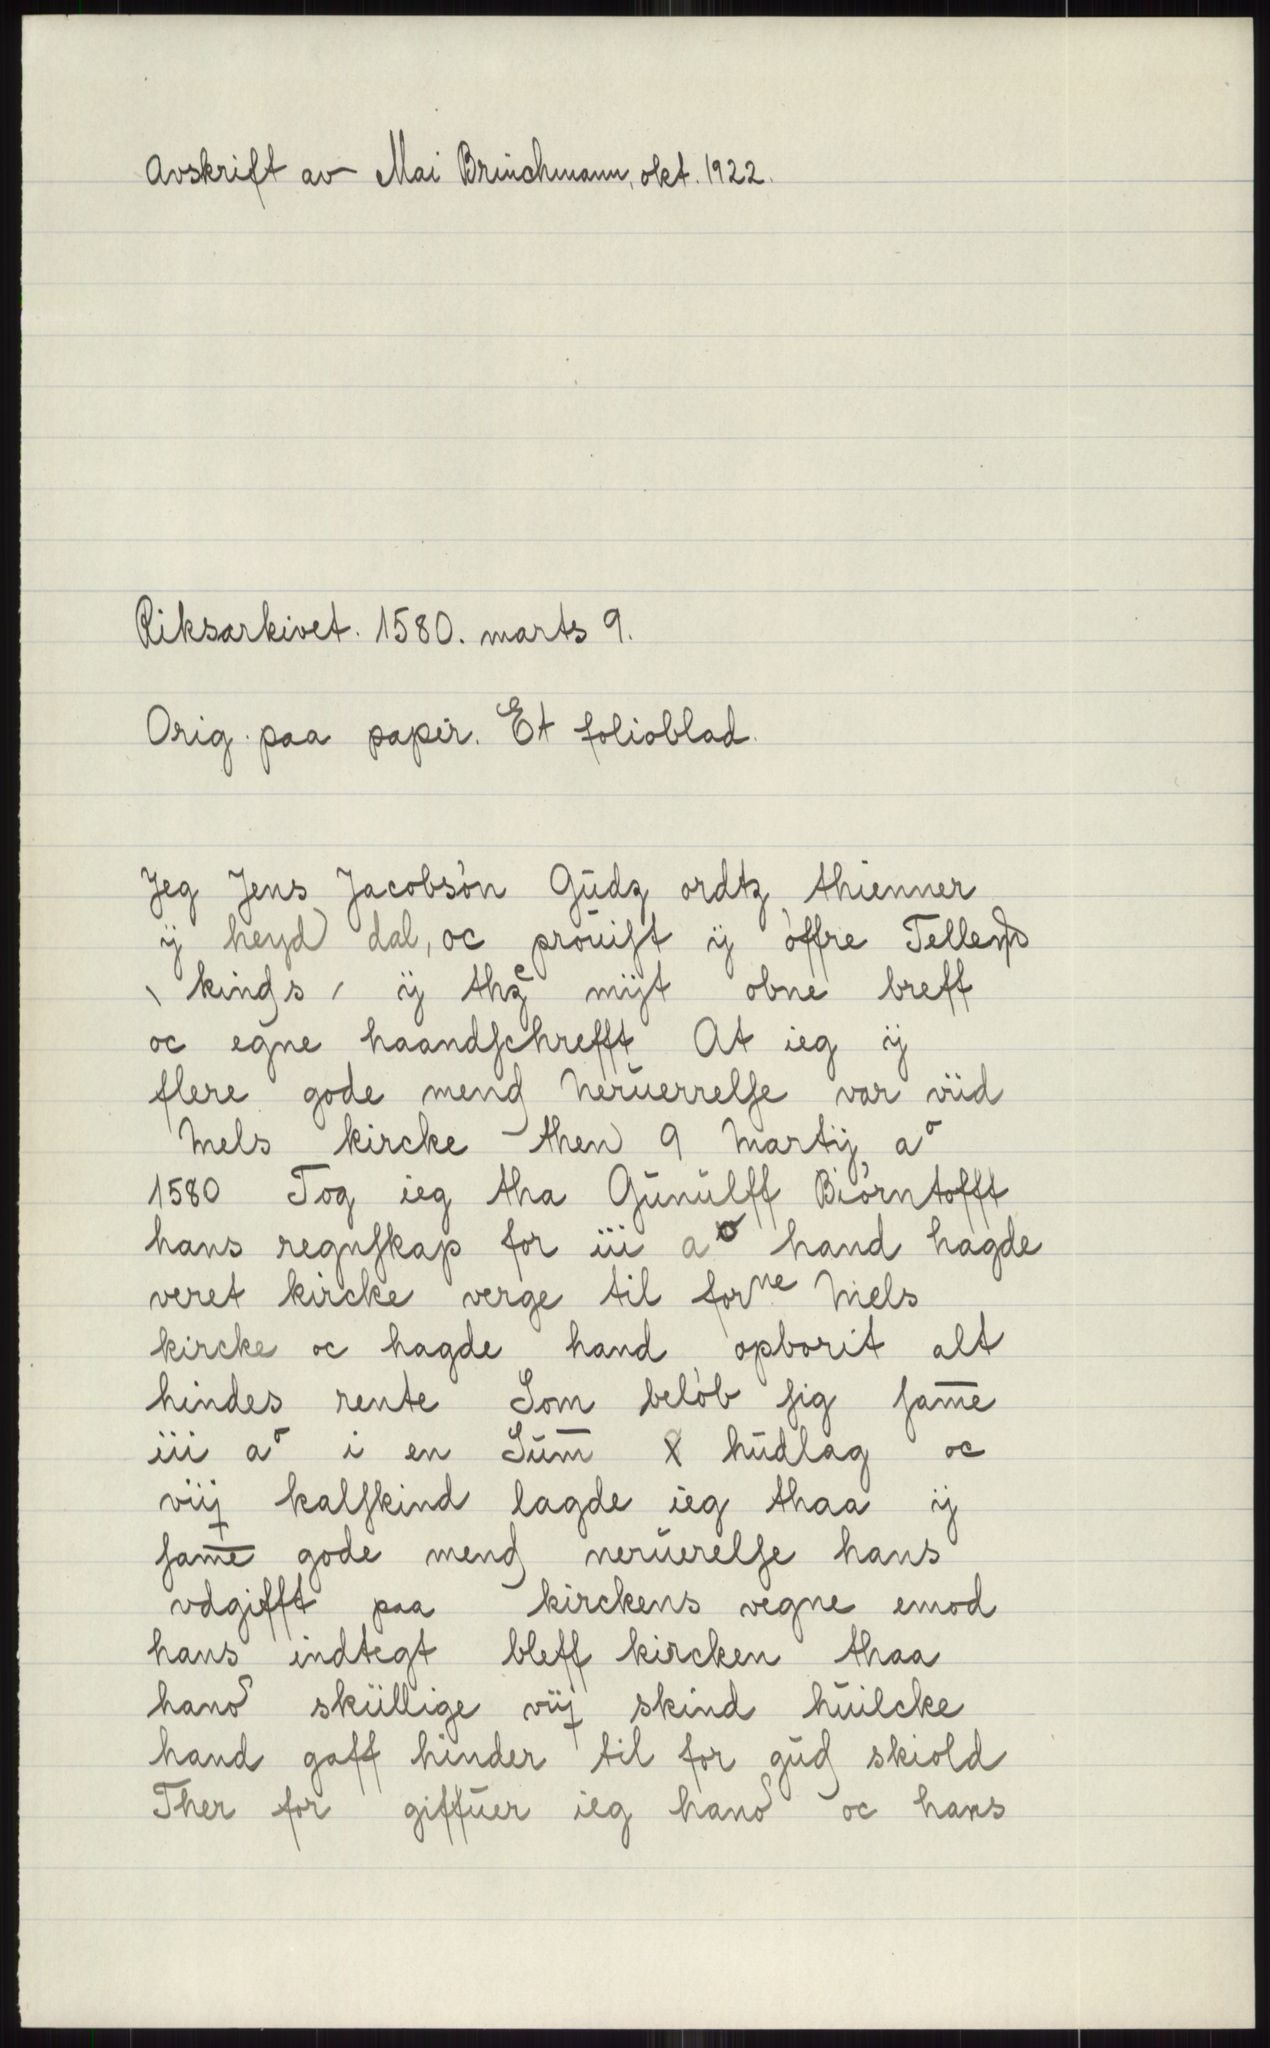 Avskrift av Mai Brinchmann, okt. 1922.
Riksarkivet. 1580. marts 9.
Orig. paa papir. Et folioblad.
Jeg Jens Jacobsön Gŭdz ordtz thienner
ÿ heyd dal, oc prŏŭist ÿ öffre Tellem
kinds ÿ thz mÿt obne breff
oc egne haandschrefft At ieg ÿ
flere gode mend nerŭerrelse var vid
Mels kircke then 9 Martÿ aº
1580 Tog ieg tha Gŭnŭlff Biörntofft
hans regnskap for iii aº hand hagde
veret kircke verge til forne Mels
kircke oc hagde hand opborit alt
hindes rente Som belöb sig sam̄e
iii aº i en Sŭm̄ x hŭdlag oc
viij kalfskind lagde ieg thaa ÿ
sam̄e gode mend nerŭerelse hans
vdgifft paa kirckens vegne emod
hans indtegt bleff kircken thaa
hand skŭllige viij skind hŭilcke
hand gaff hinder til for gŭd skiold
Ther for giffŭer ieg hand oc hans